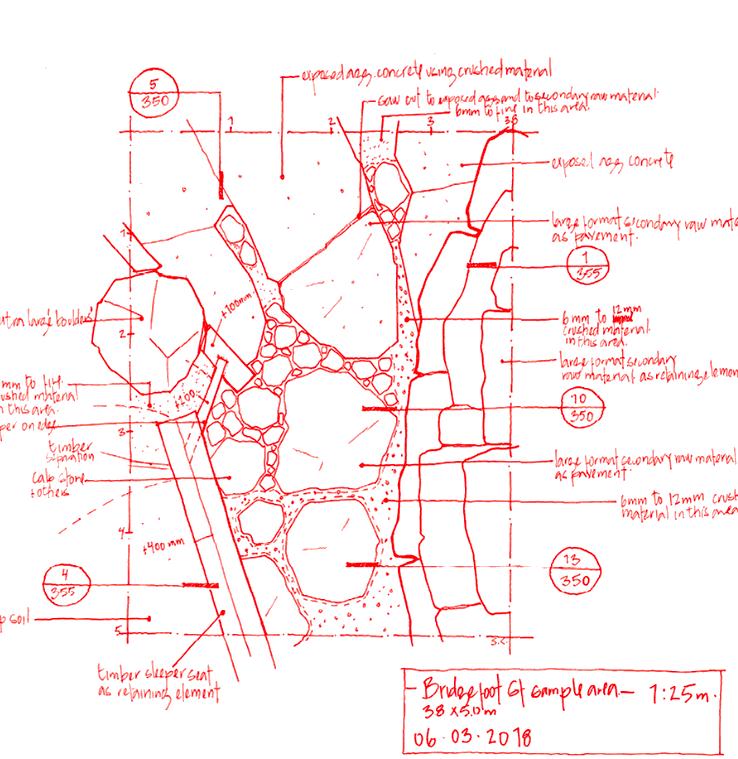 5
350
exposed agg. concrete using crushed material
saw cut to exposed agg and to secondary raw material
6mm to fine in this area.
1
2
3
3.8
exposed agg concrete
large format secondary raw mate
as pavement.
1
355
1
+100mm
xtra large boulders
2
6 mm to 12mm
crushed material
in this area.
large format secondary
raw material as retaining elemen
mm to fill.
ushed material
n this area.
per on edge
+100
10
350
3
timber
separation
Calp stone
+ others
large format secondary raw material
as pavement.
6mm to 12mm crush
material in this area
4
+400 mm
4
355
13
350
p soil
5
timber sleeper seat
as retaining element
- Bridgefoot St sample area - 1:25m.
38 x 5.0m
06.03.2018